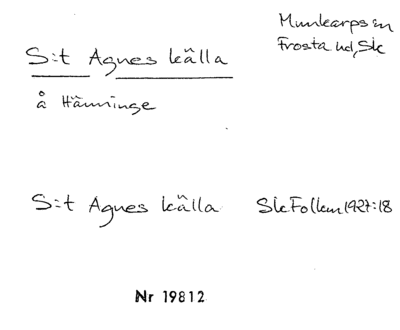 Munkarps sn
Frosta hd, Sk
S:t Agnes källa
å Hänninge
S:t Agnes källa Sk Follem 1927:18
Nr 19812